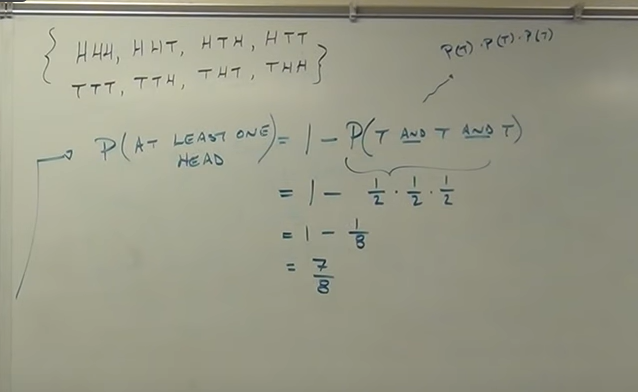 { HHH, HHT, HTH, HTT
TTT, TTH, THT, THH }
P(T) · P(T) · P(T)
P(AT LEAST ONE HEAD) = 1 - P(T AND T AND T)
= 1 - 1/2 · 1/2 · 1/2
= 1 - 1/8
= 7/8